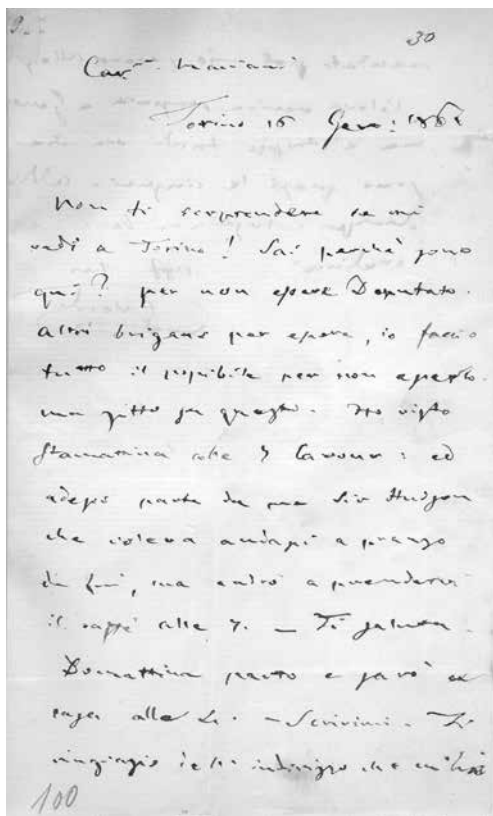 30
Car.mo Mariani
Torino 16 Gen: 1861
Non ti sorprendere se mi
vedi a Torino! Sai perchè sono
qui? per non essere Deputato.
Altri brigano per essere, io faccio
tutto il possibile per non esserlo.
ma zitto su questo. Ho visto
stamattina alle 5 Cavour: ed
adesso parte da me Sir Hudson
che voleva andassi a pranzo
da lui, ma andrò a prendervi
il caffè alle 7. — Ti saluto.
Domattina parto e sarò a
casa alle 2. — Scrivimi. Ti
ringrazio dell' indirizzo che m'hai
100